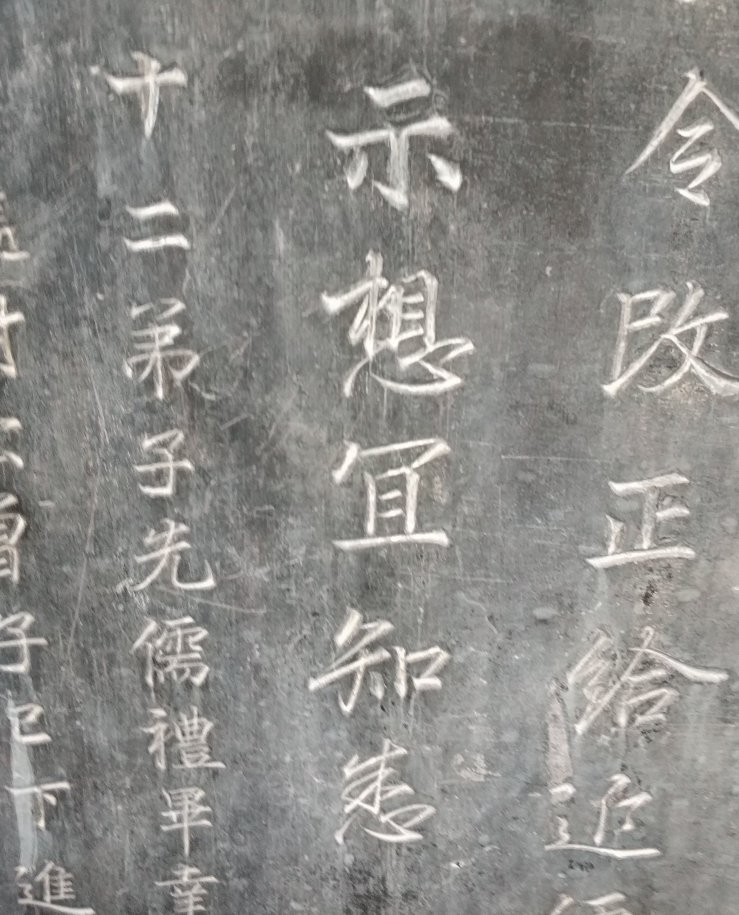 令改正給近
示想宜知悉
十二弟子先儒禮畢幸
曾子已下進